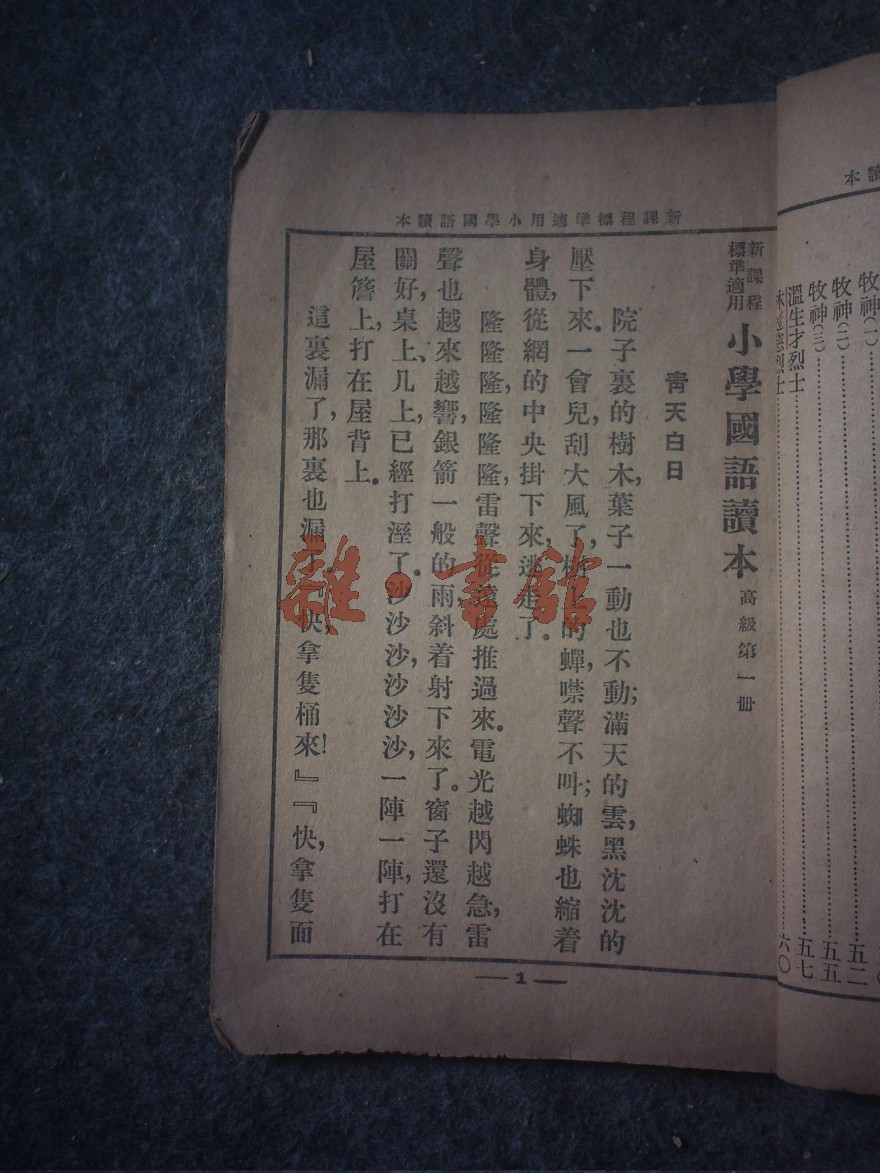 讀本
牧神(一)
牧神(二)……五二
牧神(三)……五五
溫生才烈士……五七
烈士……六〇
新課程標準適用小學國語讀本
新課程標準適用 小學國語讀本 高級第一册
青天白日
院子裏的樹木,葉子一動也不動;滿天的雲,黑沈沈的
壓下來。一會兒,刮大風了,樹上的蟬,噤聲不叫;蜘蛛也縮着
身體,從網的中央掛下來,逃走了。
隆隆隆,隆隆隆,雷聲從遠處推過來。電光越閃越急,雷
聲也越來越響,銀箭一般的雨,斜着射下來了。窗子還沒有
關好,桌上、几上,已經打溼了。沙沙沙,沙沙沙,一陣一陣,打在
屋簷上,打在屋背上。
這裏漏了,那裏也漏了。『快,拿隻桶來!』『快,拿隻面
—1—
雜·書館